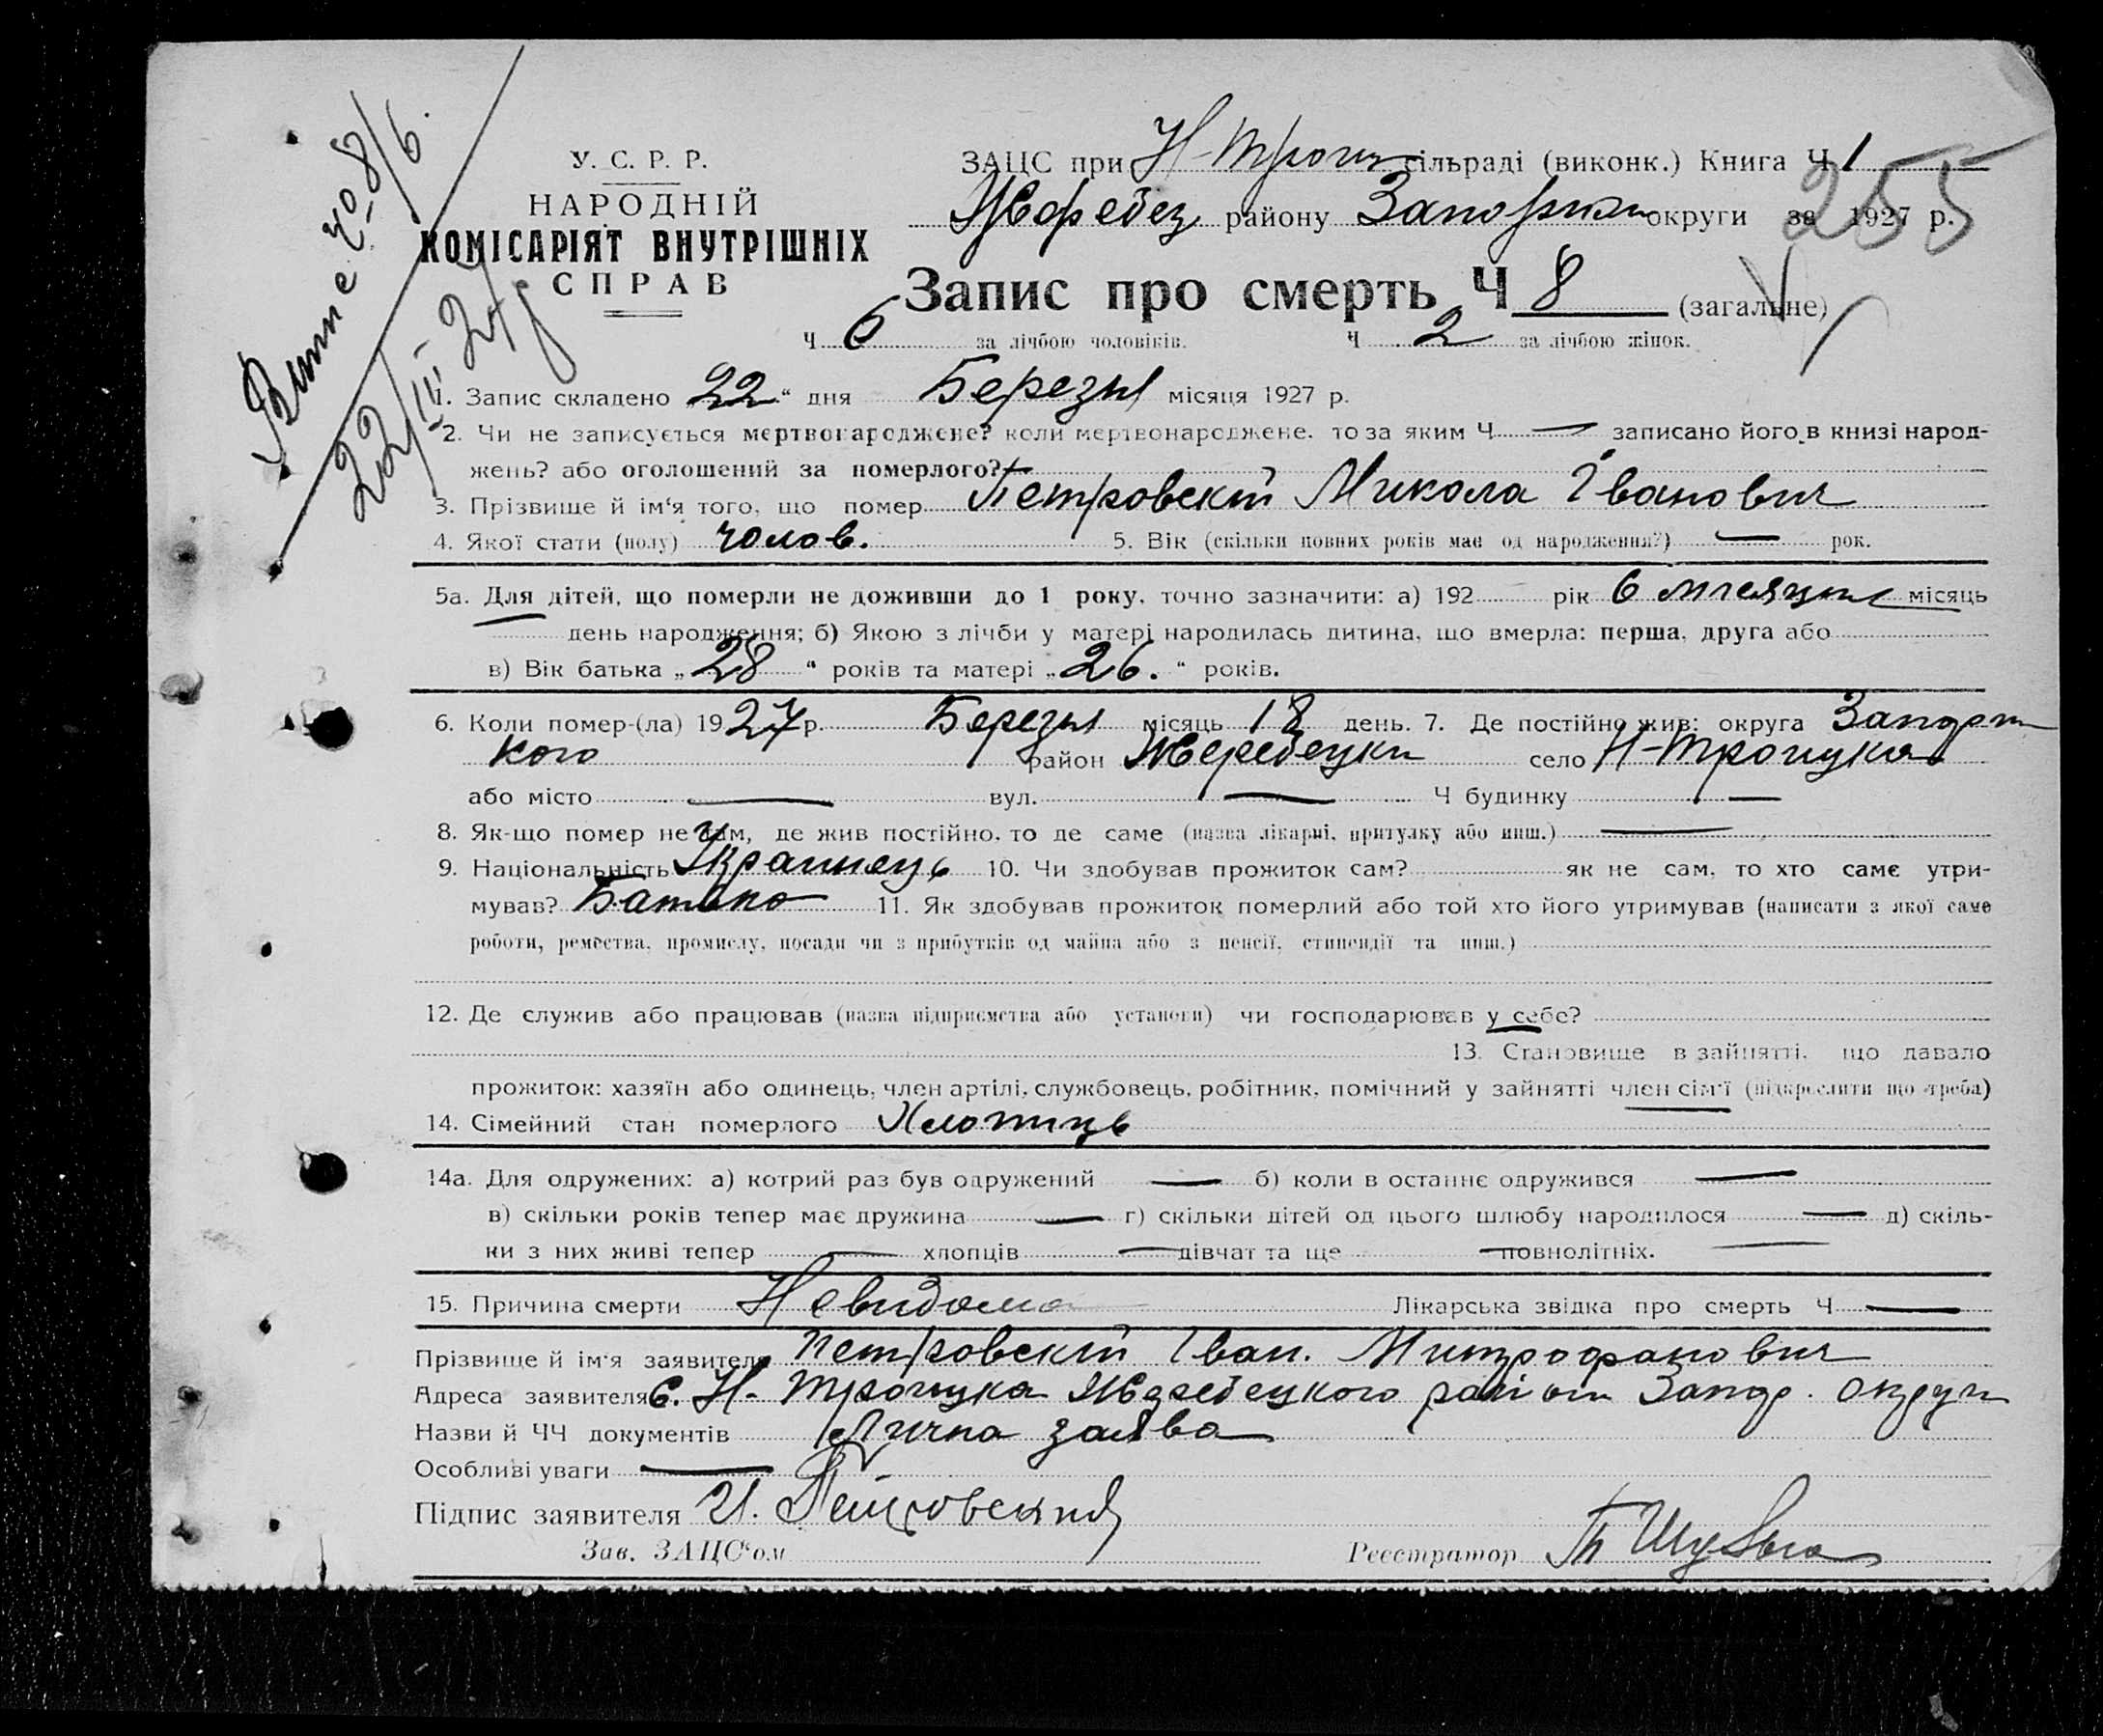 У. С. Р. Р.
НАРОДНІЙ
КОМІСАРІЯТ ВНУТРІШНІХ
СПРАВ
22/III 27
ЗАЦС при Н-Троиц сільраді (виконк.) Книга Ч 1
255
Жеребец району Запоріж округи за 1927 р.
Запис про смерть Ч 8 (загальне)
Ч 6 за лічбою чоловіків. Ч 2 за лічбою жінок.
1. Запис складено „22“ дня Березня місяця 1927 р.
2. Чи не записується мертвонароджене? коли мертвонароджене, то за яким Ч — записано його в книзі народ-
жень? або оголошений за померлого? —
3. Прізвище й ім'я того, що помер Петровскій Микола Іванович
4. Якої стати (полу) чолов. 5. Вік (скільки повних років має од народження?) — рок.
5а. Для дітей, що померли не доживши до 1 року, точно зазначити: а) 192 рік 6 місяцив місяць
день народження; б) Якою з лічби у матері народилась дитина, що вмерла: перша, друга або
в) Вік батька „28“ років та матері „26.“ років.
6. Коли помер-(ла) 1927 р. Березня місяць 18 день. 7. Де постійно жив: округа Запориж
кого район Жеребецки село Н-Троицка
або місто — вул. — Ч будинку —
8. Як-що помер не там, де жив постійно, то де саме (назва лікарні, притулку або инш.) —
9. Національність Украинець 10. Чи здобував прожиток сам? як не сам, то хто саме утри-
мував? Батько 11. Як здобував прожиток померлий або той хто його утримував (написати з якої саме
роботи, ремества, промислу, посади чи з прибутків од майна або з пенсії, стипендії та инш.)
12. Де служив або працював (назва підприємства або установи) чи господарював у себе?
13. Становище в зайнятті, що давало
прожиток: хазяїн або одинець, член артілі, службовець, робітник, помічний у зайнятті член сім'ї (підкреслити що треба)
14. Сімейний стан померлого Хлопиць
14а. Для одружених: а) котрий раз був одружений — б) коли в останнє одружився —
в) скільки років тепер має дружина — г) скільки дітей од цього шлюбу народилося — д) скіль-
ки з них живі тепер — хлопців — дівчат та ще — повнолітніх. —
15. Причина смерти Невидома Лікарська звідка про смерть Ч —
Прізвище й ім'я заявителя Петровскій Іван. Митрофанович
Адреса заявителя с. Н-Троицка Жеребецкого раіону Запор. округи
Назви й ЧЧ документів Лична заява
Особливі уваги —
Підпис заявителя И. Петровский
Зав. ЗАЦС'ом Реєстратор